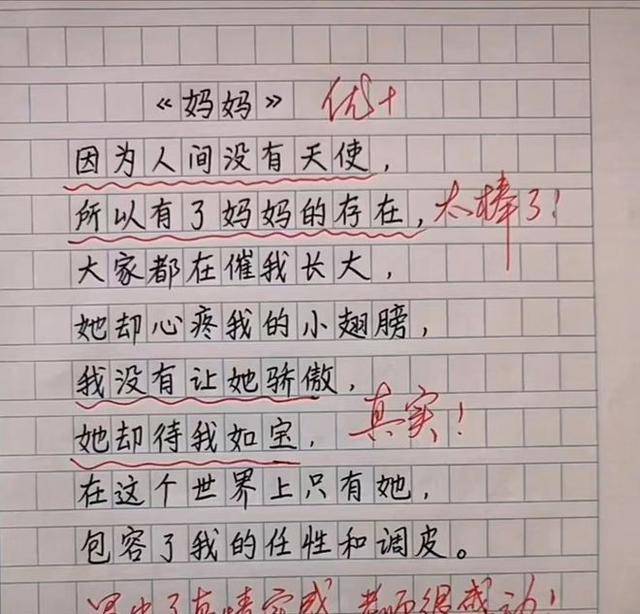 《妈妈》 优+
因为人间没有天使，
所以有了妈妈的存在，太棒了！
大家都在催我长大，
她却心疼我的小翅膀，
我没有让她骄傲，
她却待我如宝，真实！
在这个世界上只有她，
包容了我的任性和调皮。
写出了真情实感 老师很感动！